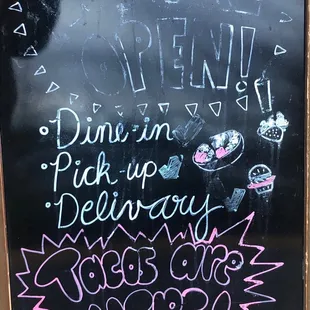 OPEN!
Dine-in
Pick-up
Delivary
Tacos are